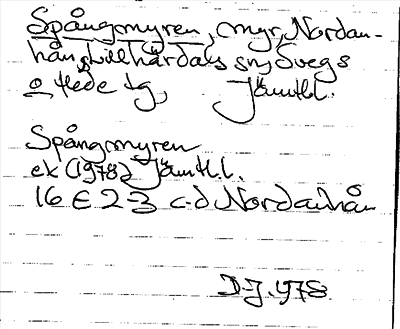 Spångmyren, myr, Nordan-
hån, Lillhärdals sn, Svegs
o Hede tg, Jämtl.
Spångmyren
ek (1978) Jämtl.
16 E 2-3 c-d Nordanhån
D-J. 1978